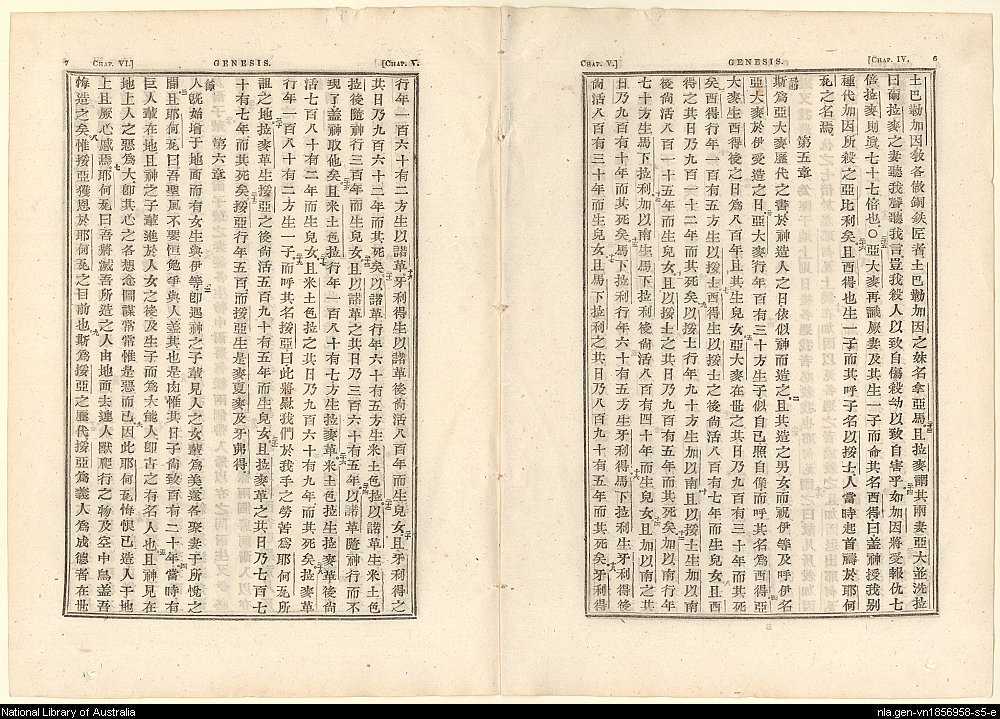 6
[Chap. IV.
GENESIS.
Chap. V.]
土巴勒加因教各做銅鉄匠者土巴勒加因之妹名拿亞馬且拉麥爾其兩妻亞大並洗拉
曰爾拉麥之妻聽我聲聽我言豈我殺人以致自傷殺幼以致自害乎如加因將受報仇七
倍拉麥則眞七十七倍也○亞大麥再識厥妻及其生一子而命其名西得曰盖神授我别
種代加因所殺之亞比利矣且西得也生一子而其呼子名以挨士人當時起首禱於耶何
瓦之名焉
第五章
斯為亞大麥歷代之書於神造人之日依似神而造之且其造之男女而祝伊等及呼伊名
亞大麥於伊受造之日亞大麥行年百有三十方生子似自己照自像而呼其名為西得亞
大麥生西得後之日為八百年且其生兒女亞大麥在世之其日乃九百有三十年而其死
矣西得行年一百有五方生以挨士西得生以挨士之後尙活八百有七年而生兒女且西
得之其日乃九百一十二年而其死矣以挨士行年九十方生加以南且以挨士生加以南
後尙活八百一十五年而生兒女且以挨士之其日乃九百有五年而其死矣加以南行年
七十方生馬下拉利加以南生馬下拉利後尙活八百有四十年而生兒女且加以南之其
日乃九百有十年而其死矣馬下拉利行年六十有五方生牙利得馬下拉利生牙利得後
尙活八百有三十年而生兒女且馬下拉利之其日乃八百九十有五年而其死矣牙利得
7
Chap. VI.]
GENESIS.
[Chap. V.
行年一百六十有二方生以諾革牙利得生以諾革後尙活八百年而生兒女且牙利得之
其日乃九百六十二年而其死矣以諾革行年六十有五方生米土色拉以諾革生米土色
拉後隨神行三百年而生兒女且以諾革之其日乃三百六十有五年以諾革隨神行而不
現了盖神取他矣且米土色拉行年一百八十有七方生拉麥革米土色拉生拉麥革後尙
活七百八十有二年而生兒女且米土色拉之其日乃九百六十有九年而其死矣拉麥革
行年一百八十有二方生一子而呼其名挨亞曰此將慰我們於我手之勞苦為耶何瓦所
詛之地拉麥革生挨亞之後尙活五百九十有五年而生兒女且拉麥革之其日乃七百七
十有七年而其死矣挨亞行年五百而挨亞生是麥夏麥及牙弗得
第六章
人旣始增于地面而有女生與伊等卽遇神之子輩見人之女輩為美遂各娶妻于所悅之
間且耶何瓦曰吾聖風不要恒勉爭與人盖其也是肉惟其日子尙致百有二十年當時有
巨人輩在地且神之子輩進於人女之後及生子而為大能人卽古之有名人也且神見在
地上人之惡為大卽其心之各想念圖謀常常惟是惡而已因此耶何瓦悔恨已造人于地
上且厥心慼焉耶何瓦曰吾將滅吾所造之人由地面去連人獸爬行之物及空中鳥盖吾
悔造之矣惟挨亞獲恩於耶何瓦之目前也斯為挨亞之歷代挨亞為義人為成德者在世
National Library of Australia
nla.gen-vn1856958-s5-e